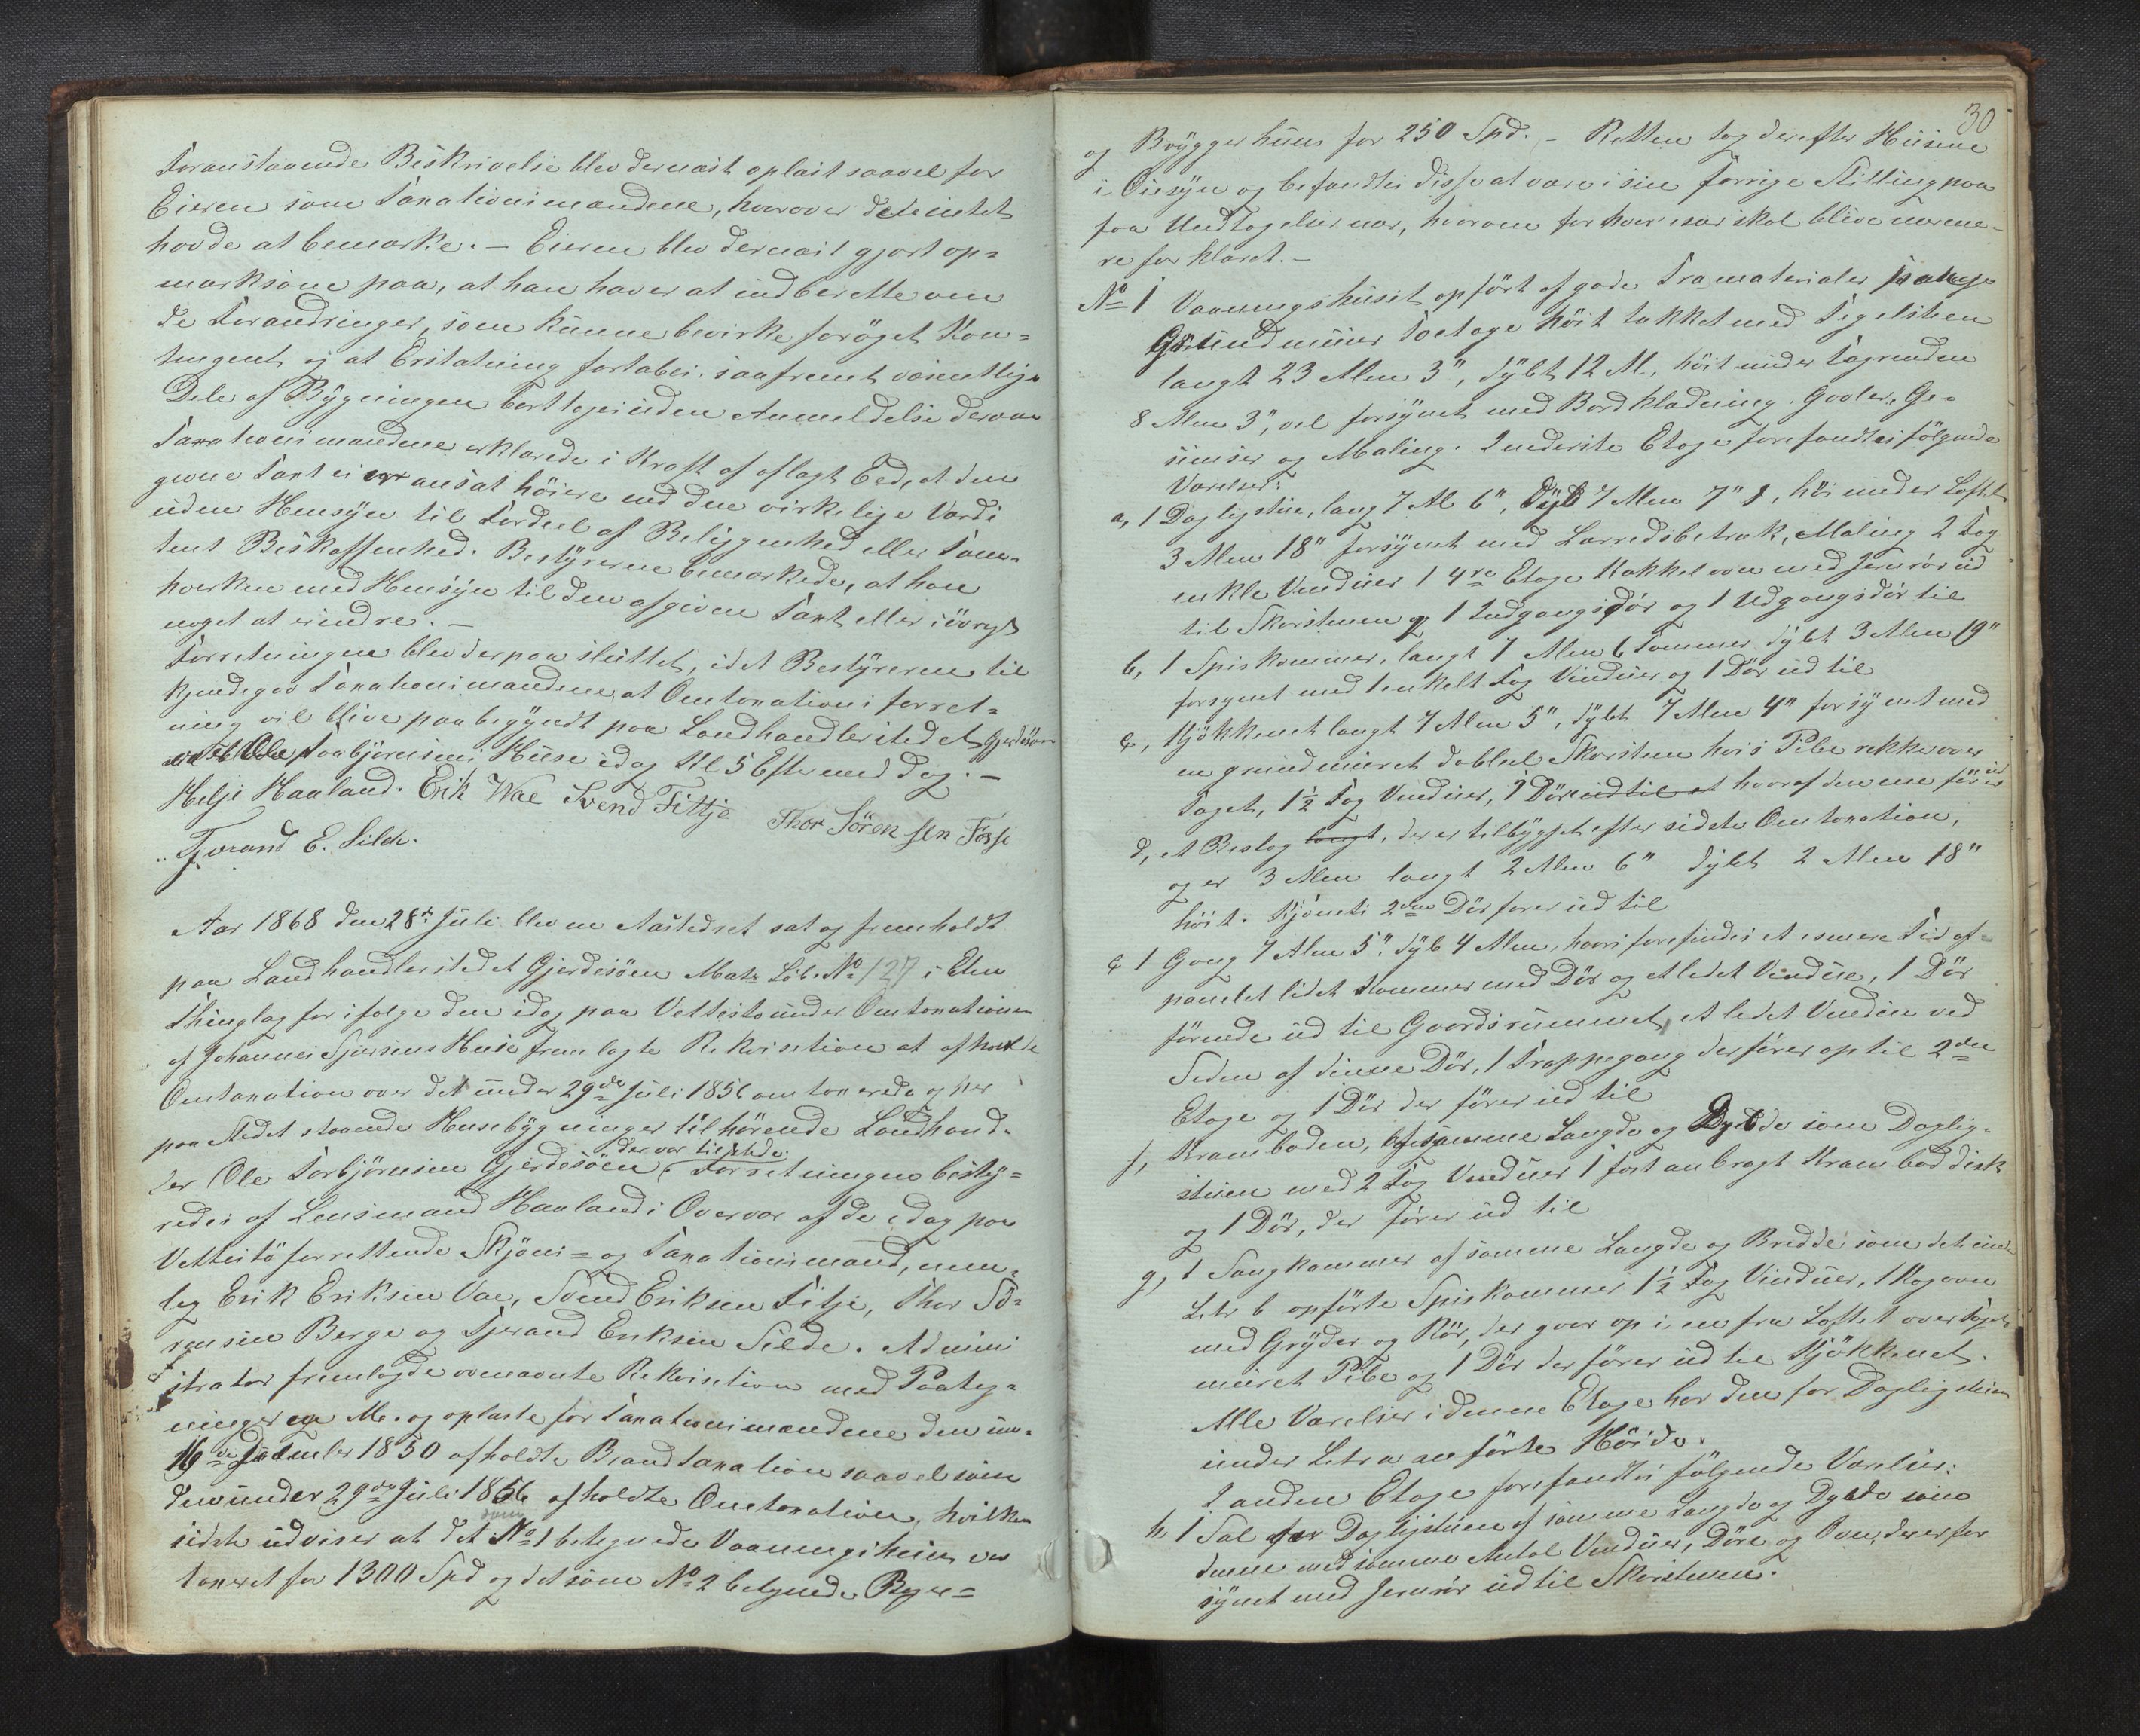 Foranstaaende Beskrivelse blev dernæst oplæst saavel for
Eieren som Taxationsmændene, hvorover de intet
havde at bemærke. — Eieren blev dernæst gjort op-
mærksom paa, at han haver at indberette om
de Forandringer, som kunne bevirke forøget Kon-
tingent og at Erstatning fortabes, saafremt væsentlige
Dele af Bygningen borttages uden Anmeldelse derom
Taxationsmændene erklærede i Kraft af aflagt Eed, at den
givne Taxt ei er ansat høiere end den virkelige Værdi
uden Hensyn til Fordeel af Beliggenhed eller Tom-
tens Beskaffenhed. Bestyreren bemærkede, at han
hverken med Hensyn til den afgivne Taxt eller iøvrigt
noget at erindre. —
Forretningen blev derpaa sluttet, idet Bestyreren til
kjendegav Taxationsmændene, at Omtaxationsforret-
ning vil blive paabegyndt paa Landhandlerstedet Gjerdesøen
Ole Torbjørnsens Huse idag Kl 5 Eftermiddag. —
Helje Haaland. Erik Wae Svend Fittje Thor Sørensen
Tjerand E. Silde.
Aar 1868 den 28de Juli blev en Aastedsret sat og fremholdt
paa Landhandlerstedet Gjerdesøen Matr. Løb. No 127 i Etne
Thinglag for ifølge den idag paa Vettestø under Omtaxationen
af Johannes Huse fremlagte Rekvisition at afholde
Omtaxation over det under 29de Juli 1856 omtaxerede og her
paa Stedet staaende Husebygninger tilhørende Landhand-
der var tilstede.
ler Ole Torbjørnsen Gjerdesøen, Forretningen besty-
redes af Lensmand Haaland i Overvær af de idag paa
Vettestø forrettende Skjøns- og Taxationsmænd, nem-
lig Erik Eriksen Vae, Svend Eriksen Fitje, Thor Sø-
rensen Berge og Tjerand Eriksen Silde. Admini
strator fremlagde ovennævnte Rekvisition med Paateg-
ninger og oplæste for Taxationsmændene den un-
16de December 1850 afholdte Brandtaxation saavelsom
den under 29de Juli 1856 afholdte Omtaxation, hvilken
som
sidste udviser at det No 1 betegnede Vaaningshuus var
taxeret for 1300 Spd og det som No 2 betegnede
30
og Bryggerhuus for 250 Spd. — Retten tog derefter Husene
i Øiesyn og befandtes disse at være i sin forrige Stilling paa
faa Undtagelser nær, hvorom for hver især skal blive nærme-
re forklaret. —
No 1 Vaaningshuset opført af gode Træmaterialer paa
Grundmuur Toetage høit takket med Tegelsteen
langt 23 Alen 3", dybt 12 Al., høit under Tagrenden
8 Alen 3", vel forsynet med Bordklædning. Ge-
simser og Maling. I nederste Etage forefandtes følgende
Værelser:
a, 1 Dagligstue, lang 7 Al 6", Dyb 7 Alen 7", høi under Loftet
3 Alen 18" forsynet med Lærredsbetræk, Maling 2 Fag
enkle Vinduer 1 4re Etage Kakkelovn med Jernrør ud
til Skorstenen og 1 Indgangsdør og 1 Udgangsdør til
b, 1 Spiskammer, langt 7 Alen 6 Tommer dybt 3 Alen 19"
forsynet med 1 enkelt Fag Vinduer og 1 Dør ud til
c, Kjøkkenet langt 7 Alen 5", dybt 7 Alen 4" forsynet med
en grundmuret dobbel Skorsteen hvis Pibe rekker over
Taget, 1½ Fag Vinduer, 1 Dør ud til et hvoraf denne fører ud
d, et Beslag langt, der er tilbygget efter sidste Omtaxation,
og er 3 Alen langt 2 Alen 6" dybt 2 Alen 18"
høit. 2den Dør fører ud til
e 1 Gang 7 Alen 5", dyb 4 Alen, hvori forefindes et senere Tid af-
panelet lidet Kammer med Dør og et lidet Vindue, 1 Dør
førende ud til Gaardsrummet, et lidet Vindue ved
Siden af denne Dør, 1 Trappegang der fører op til 2den
Etage og 1 Dør der fører ud til
f, Kramboden, af samme Længde og Dybde som Daglig-
stuen med 2 Fag Vinduer 1 fast anbragt Kramboddisk
og 1 Dør, der fører ud til
g, 1 Sengkammer af samme Længde og Bredde som det under
Litr b opførte Spiskammer 1½ Fag Vinduer, 1 Kogovn
med Gryder og Rør, der gaar op i en fra Loftet over Taget
muret Pibe og 1 Dør der fører ud til Kjøkkenet.
Alle Værelser i denne Etage har den for Dagligstuen
under Litr a anførte Høide.
I anden Etage forefandtes følgende Værelser:
h, 1 Sal over Dagligstuen af samme Længde og Dybde som
denne med samme Antal Vinduer, Døre og Ovn, der er for
synet med Jernrør ud til Skorstenen.